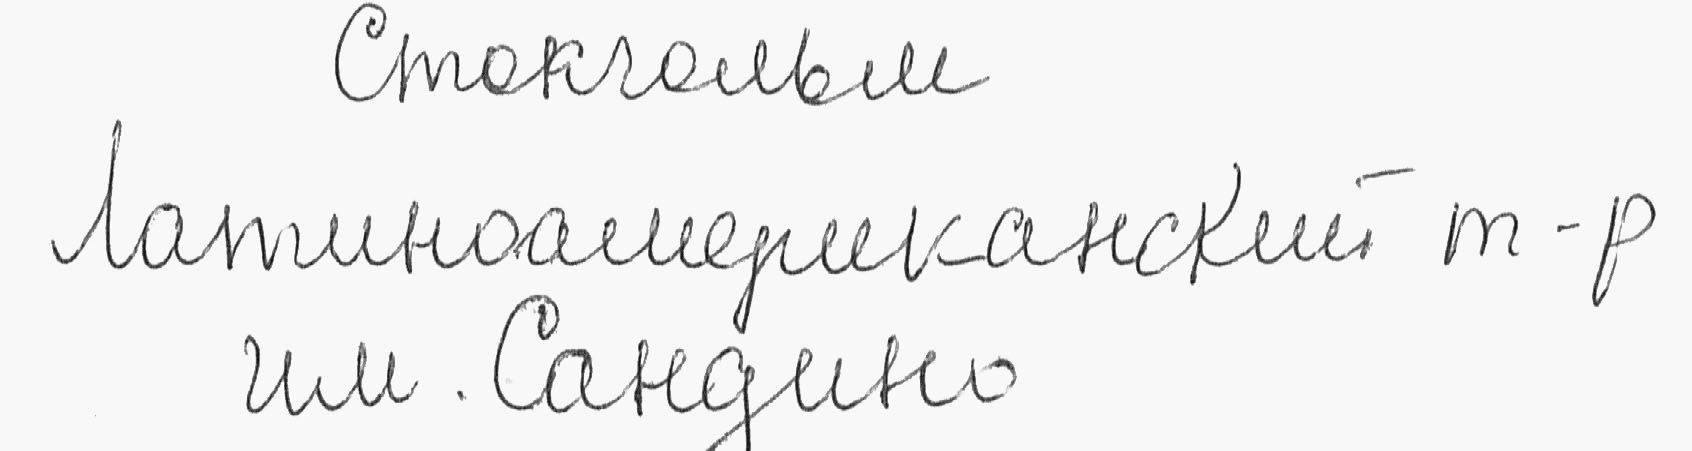 Стокгольм
Латиноамериканский т-р
им. Сандино